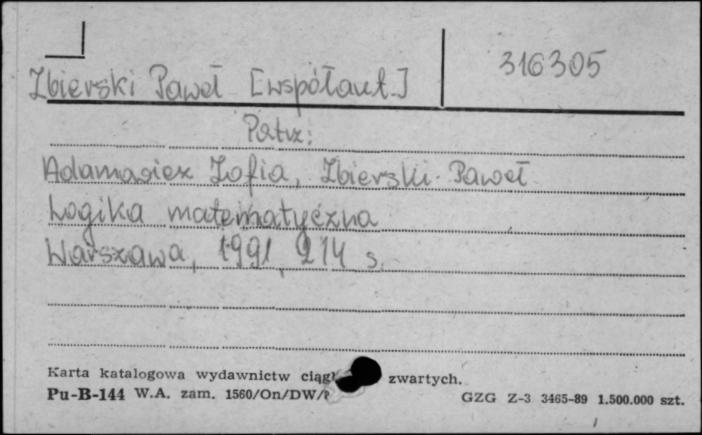 Zbierski Paweł [współaut.]
316305
Patrz:
Adamowicz Zofia, Zbierski Paweł
Logika matematyczna
Warszawa, 1991, 214 s.
Karta katalogowa wydawnictw zwartych.
Pu-B-144 W.A. zam. 1560/On/DW/
GZG Z-3 3465-89 1.500.000 szt.